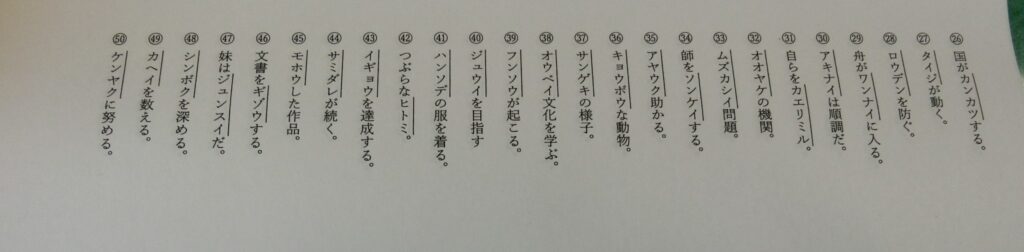 ㉖ 国がカンカツする。
㉗ タイジが動く。
㉘ ロウデンを防ぐ。
㉙ 舟がワンナイに入る。
㉚ アキナイは順調だ。
㉛ 自らをカエリミル。
㉜ オオヤケの機関。
㉝ ムズカシイ問題。
㉞ 師をソンケイする。
㉟ アヤウク助かる。
㊱ キョウボウな動物。
㊲ サンゲキの様子。
㊳ オウベイ文化を学ぶ。
㊴ フンソウが起こる。
㊵ ジュウイを目指す
㊶ ハンソデの服を着る。
㊷ つぶらなヒトミ。
㊸ イギョウを達成する。
㊹ サミダレが続く。
㊺ モホウした作品。
㊻ 文書をギゾウする。
㊼ 妹はジュンスイだ。
㊽ シンボクを深める。
㊾ カヘイを数える。
㊿ ケンヤクに努める。